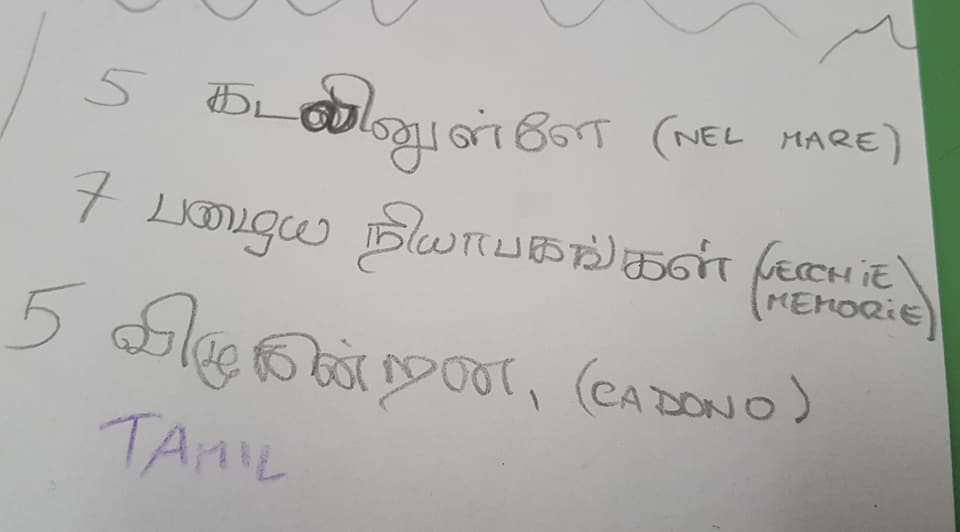 5 கடலினுள்ளே (NEL MARE)
7 பழைய நியாபகங்கள் (VECCHIE
MEMORIE)
5 விழுகின்றன, (CADONO)
TAMIL